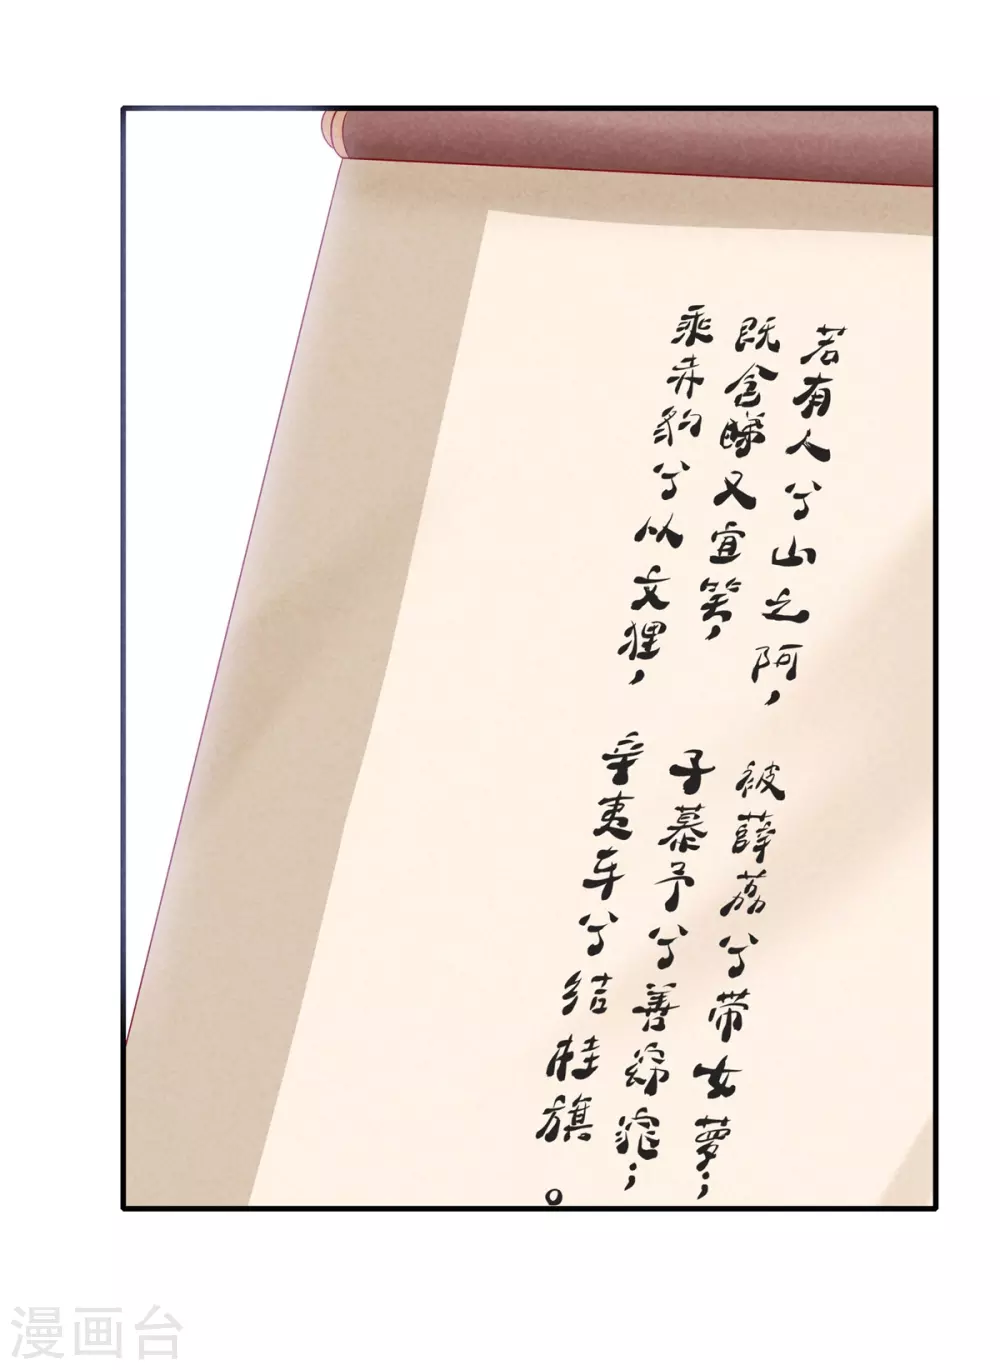 若有人兮山之阿，被薜荔兮带女萝；
既含睇又宜笑，子慕予兮善窈窕；
乘赤豹兮从文狸，辛夷车兮结桂旗。
漫画台